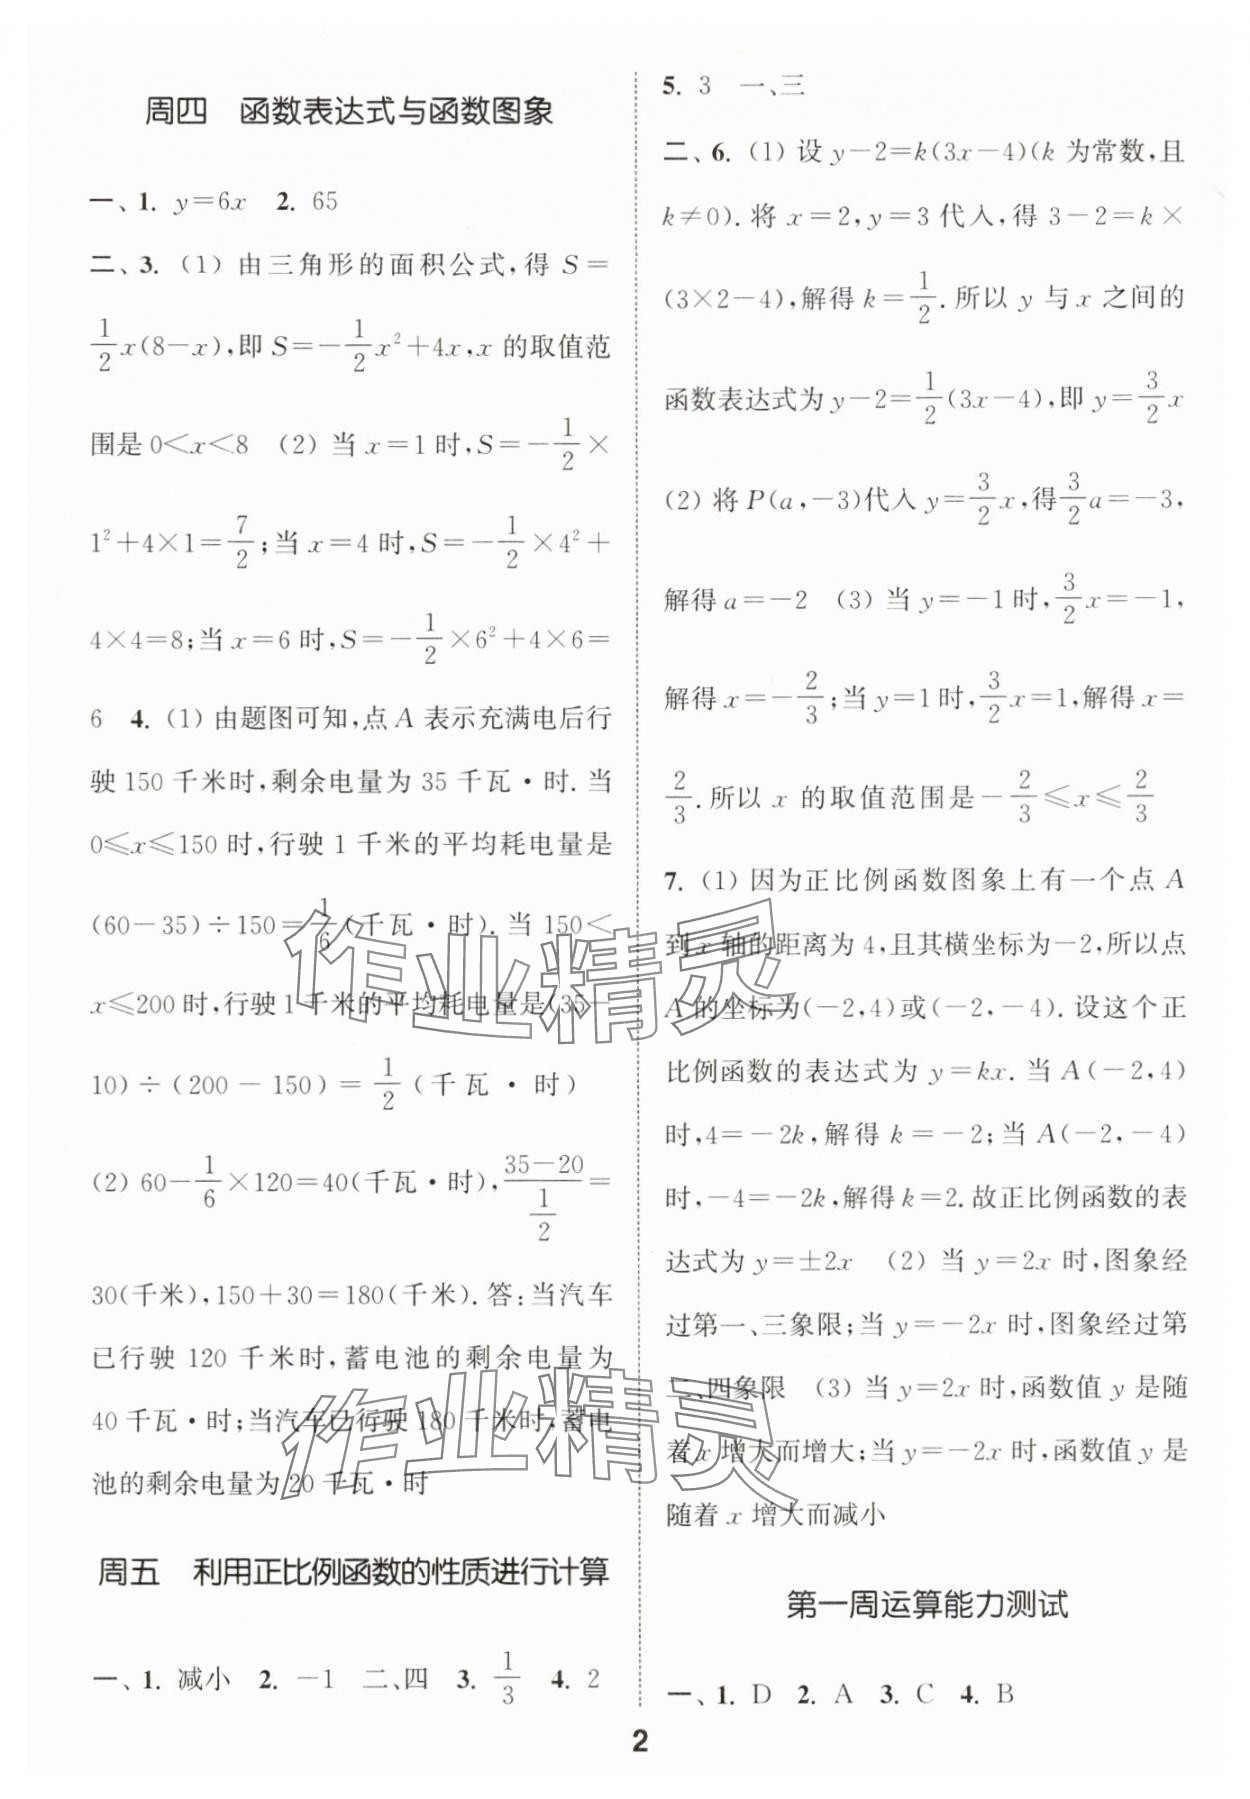 周四　函数表达式与函数图象
一、1. y=6x　2. 65
二、3. (1) 由三角形的面积公式,得 S=
1/2x(8-x),即 S=-1/2x²+4x,x 的取值范
围是 0<x<8　(2) 当 x=1 时,S=-1/2×
1²+4×1=7/2;当 x=4 时,S=-1/2×4²+
4×4=8;当 x=6 时,S=-1/2×6²+4×6=
6　4. (1) 由题图可知,点 A 表示充满电后行
驶 150 千米时,剩余电量为 35 千瓦·时. 当
0≤x≤150 时,行驶 1 千米的平均耗电量是
(60-35)÷150=1/6(千瓦·时). 当 150<
x≤200 时,行驶 1 千米的平均耗电量是(35-
10)÷(200-150)=1/2(千瓦·时)
(2) 60-1/6×120=40(千瓦·时),(35-20)/(1/2)=
30(千米),150+30=180(千米). 答:当汽车
已行驶 120 千米时,蓄电池的剩余电量为
40 千瓦·时;当汽车已行驶 180 千米时,蓄电
池的剩余电量为 20 千瓦·时
周五　利用正比例函数的性质进行计算
一、1. 减小　2. -1　二、四　3. 1/3　4. 2
5. 3　一、三
二、6. (1) 设 y-2=k(3x-4)(k 为常数,且
k≠0). 将 x=2,y=3 代入,得 3-2=k×
(3×2-4),解得 k=1/2. 所以 y 与 x 之间的
函数表达式为 y-2=1/2(3x-4),即 y=3/2x
(2) 将 P(a,-3)代入 y=3/2x,得3/2a=-3,
解得 a=-2　(3) 当 y=-1 时,3/2x=-1,
解得 x=-2/3;当 y=1 时,3/2x=1,解得 x=
2/3. 所以 x 的取值范围是-2/3≤x≤2/3
7. (1) 因为正比例函数图象上有一个点 A
到 x 轴的距离为 4,且其横坐标为-2,所以点
A 的坐标为(-2,4)或(-2,-4). 设这个正
比例函数的表达式为 y=kx. 当 A(-2,4)
时,4=-2k,解得 k=-2;当 A(-2,-4)
时,-4=-2k,解得 k=2. 故正比例函数的表
达式为 y=±2x　(2) 当 y=2x 时,图象经
过第一、三象限;当 y=-2x 时,图象经过第
二、四象限　(3) 当 y=2x 时,函数值 y 是随
着 x 增大而增大;当 y=-2x 时,函数值 y 是
随着 x 增大而减小
第一周运算能力测试
一、1. D　2. A　3. C　4. B
2
作业精灵
作业精灵